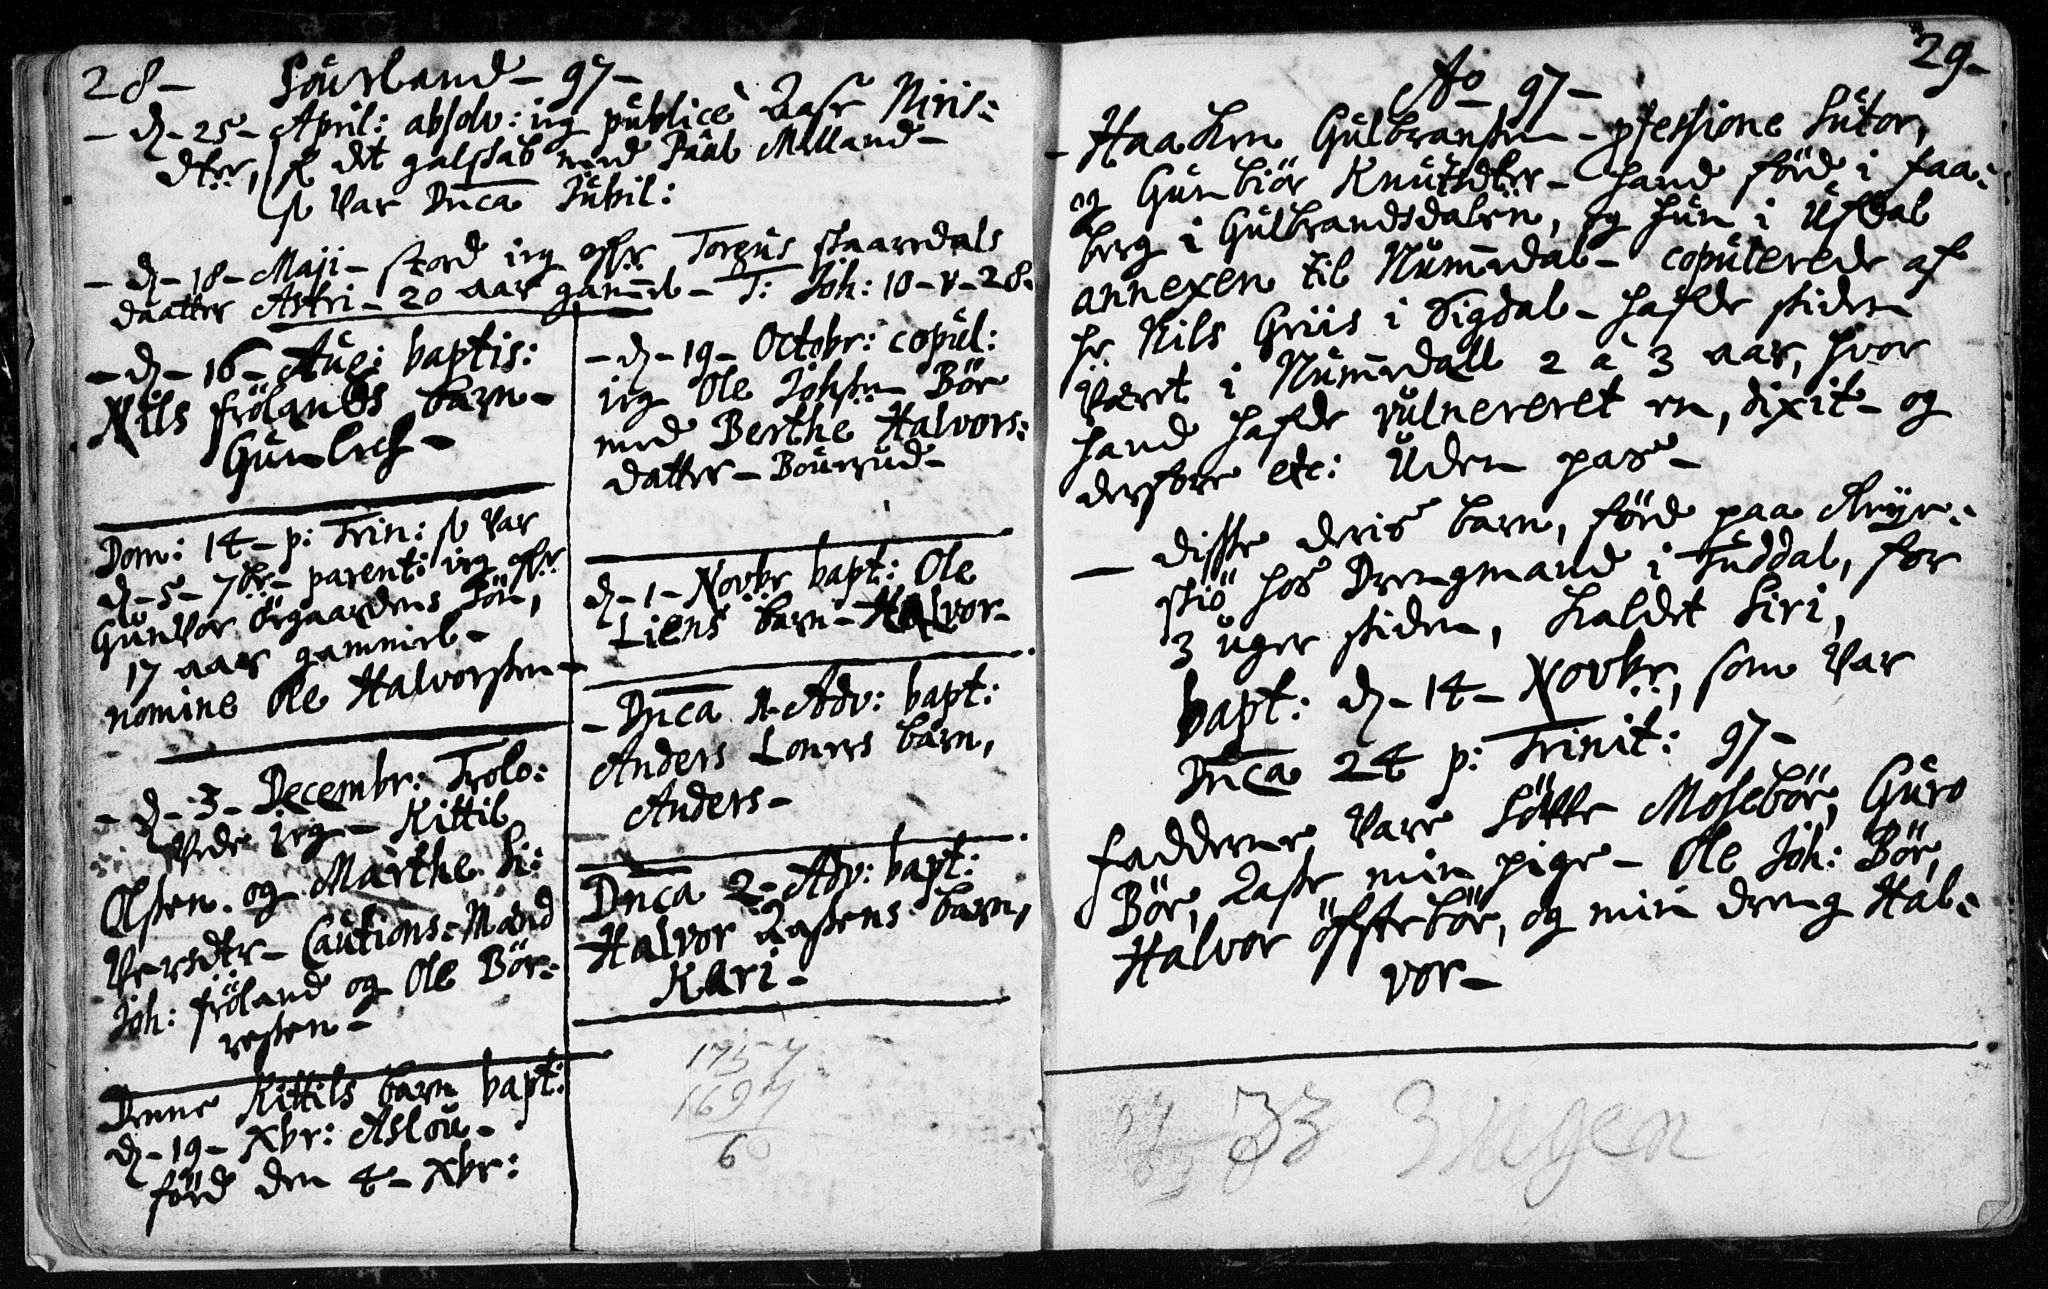 28- Souvland - 97-
- d. 25 - April: absolv: ieg publicè Aasse Niris:
dter, det galskab med Paal Milland -
Var Dnca Jubil:
- d. 18 - Maji - stod ieg offr Torgus staardals
daatter Astri - 20 aar gammel - T: Joh: 10 - v - 28.
- d. 16 - Aug: baptis:
Nils frölands barn -
Gunlech -
Dom: 14 - p: Trin: Var
d. 5 - 7br - parent: ieg offr
Gunvor örgaardens Sön,
17 aar gammel -
nomine Ole Halvorssen -
- d. 3 - Decembr: Trolo:
vede ieg - Kittil
Olssen. og Marthe Si:
Versdtr - Cautions-Mænd
Joh: fröland og Ole Bör-
ressen -
Denne Kittils barn bapt:
d. 19 - Xbr: Aslou -
förd den 4 - Xbr:
- d. 19 - Octobr: copul:
ieg Ole Johssn Bör
med Berthe Halvors:
datter - Bourud -
d. 1 - Novbr bapt: Ole
Liens barn - Halvor -
- Dnca 1 Adv: bapt:
Anders Loners barn,
Anders -
Dnca 2 - Adv: bapt:
Halvor Aassens barn,
Kari -
1757
1697
60
29-
Ao 97-
- Haaken Gulbranssen - pfessione Sutor,
og Gunbiör Knutsdter - hand förd i faa:
berg i Gulbrandsdalen, og hun i Ufdal
annexen til Nummedal - copulerede af
hr Nils Griis i Sigdal - hafde siden
Været i Nummedall 2 à 3 aar, hvor
hand hafde vulnereret en, dixit - og
derfore etc: Uden pas -
- disse deris barn, förd paa
siö hos Drengmand i Tuddal, for
3 uger siden, kaldet Siri,
bapt: d. 14 - Novbr, som Var
Dnca 24 p: Trinit: 97-
fadderne Vare Mosebör, Guro
Bör, Aasse min pige - Ole Joh: Bör,
Halvor öffstebör, og min dreng Hal-
vor -
33